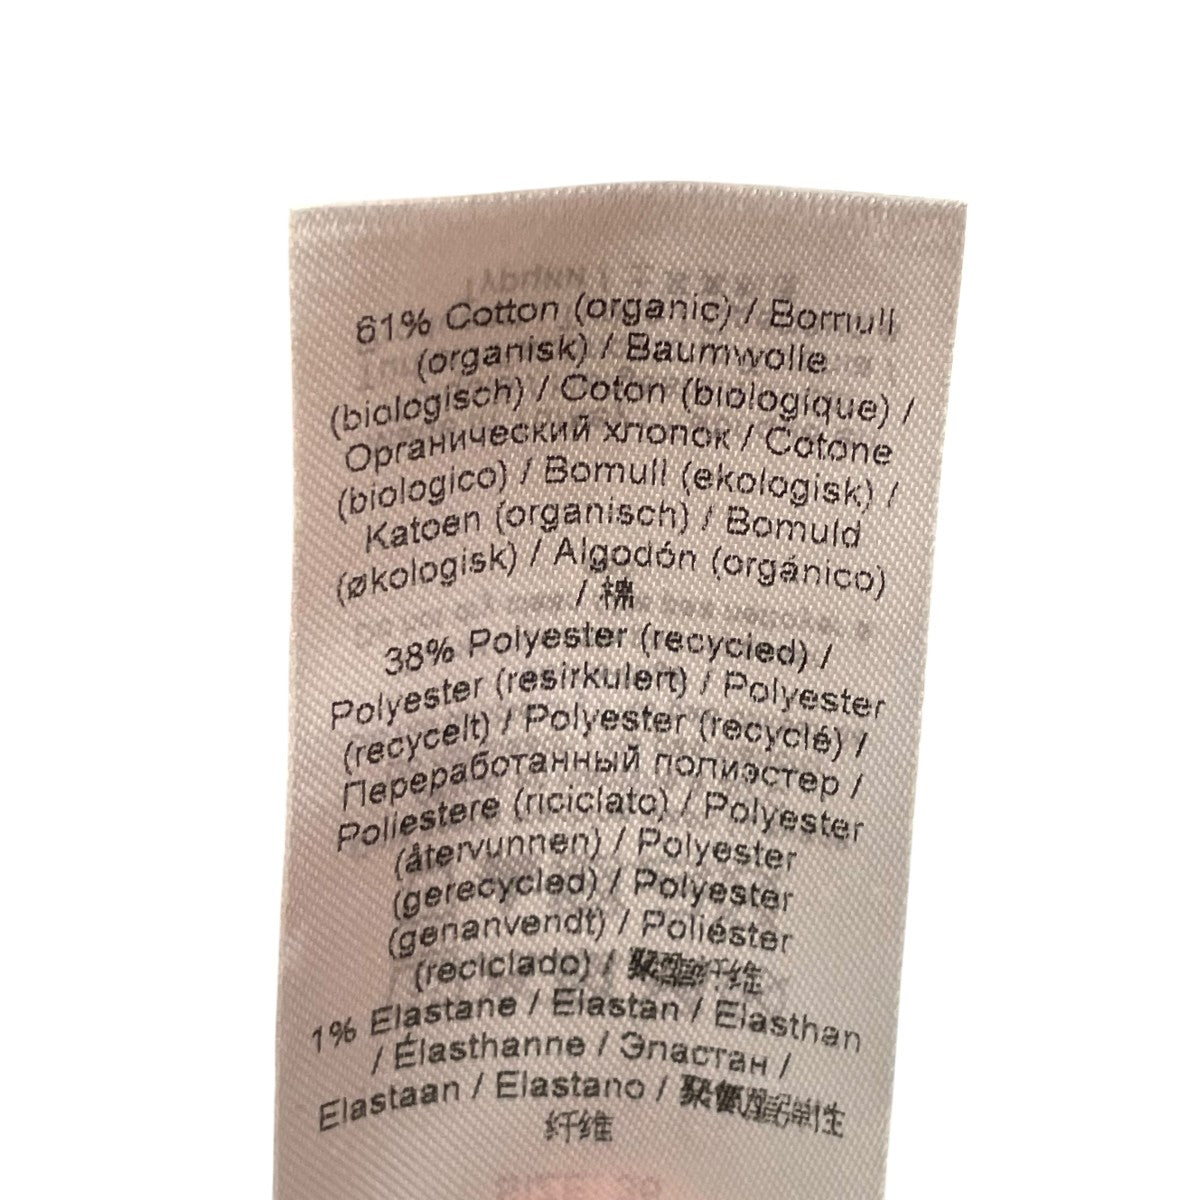 61% Cotton (organic) / Bomull
(organisk) / Baumwolle
(biologisch) / Coton (biologique) /
Органический хлопок / Cotone
(biologico) / Bomull (ekologisk) /
Katoen (organisch) / Bomuld
(økologisk) / Algodón (orgánico)
/ 棉
38% Polyester (recycled) /
Polyester (resirkulert) / Polyester
(recycelt) / Polyester (recyclé) /
Переработанный полиэстер /
Poliestere (riciclato) / Polyester
(återvunnen) / Polyester
(gerecycled) / Polyester
(genanvendt) / Poliéster
(reciclado) / 聚酯纤维
1% Elastane / Elastan / Elasthan
/ Élasthanne / Эластан /
Elastaan / Elastano / 聚氨酯弹性
纤维